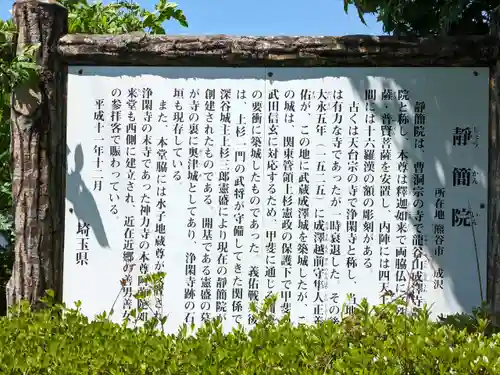 静簡院
じょうかんいん
所在地 熊谷市 成沢
静簡院は、曹洞宗の寺で龍谷山成澤寺静簡
院と称し、本尊は釈迦如来で両脇仏に文殊菩
薩・普賢菩薩を安置し、内陣には四天
間には十六羅漢の額の彫刻がある
古くは天台宗の寺で浄閑寺と称し、当地
は有力な寺であったが一時衰退した。その後
大永五年（一五二五）に成澤越前守隼人正善
佑が、この地に武蔵成澤城を築城したが、こ
の城は、関東管領上杉憲政の保護下で甲斐の
武田信玄に対応するため、甲斐に通じる
の要衝に築城したものであった。義佑戦
は、上杉一門の武将が守備してきた関係で
深谷城主上杉三郎憲盛により現在の静簡院が
創建された寺である。開基である憲盛の墓
が寺の裏に奥津城としてあり、浄閑寺跡の石
垣も現存している。
また、本堂脇には水子地蔵尊が
浄閑寺の末寺であった神力寺の本尊
来堂も西側に建立され、近在近郷の善男善女
の参拝客で賑わっている。
平成十一年十二月
埼玉県